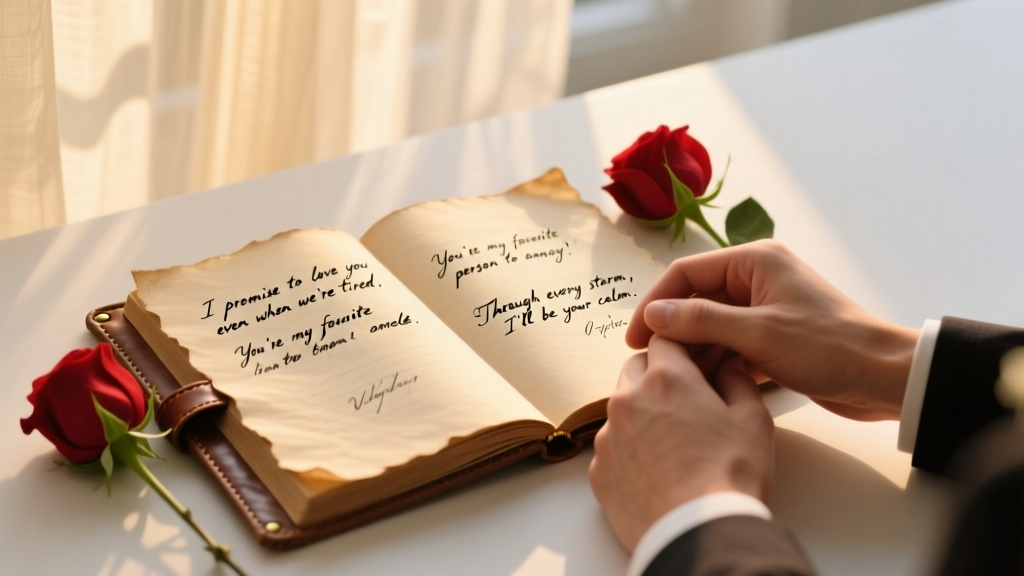 I promise to love you
even when we're tired.
You're my favorite
You're my favorite
person to annoy!
Through every storm,
I'll be your calm.